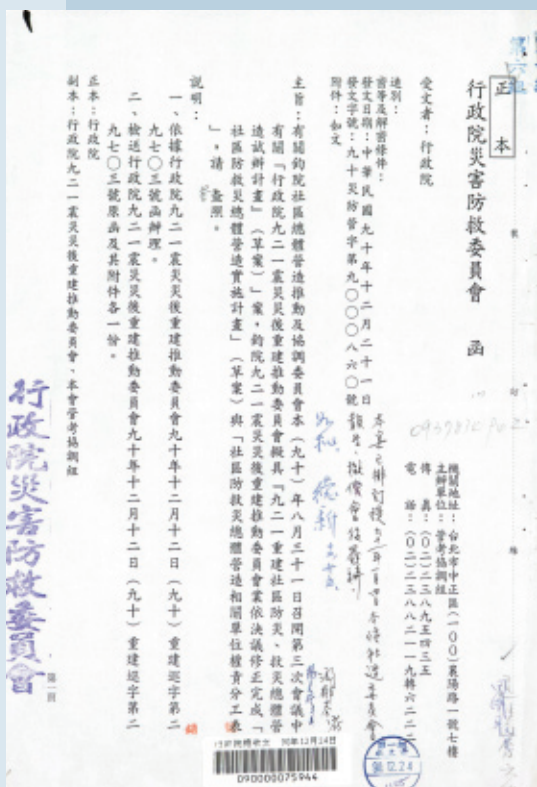 正本
行政院災害防救委員會　函
機關地址：台北市中正區（一００）襄陽路一號七樓
主辦單位：管考協調組
傳　真：（０二）二三八九五四三五
電　話：（０二）二三八八二一一九轉六二二
受文者：行政院
速別：
密等及解密條件：
發文日期：中華民國九十年十二月二十一日
發文字號：九十災防管字第九０００八六０號
附件：如文
主旨：有關鈞院社區總體營造推動及協調委員會本（九十）年八月三十一日召開第三次會議中
有關「行政院九二一震災災後重建推動委員會擬具『九二一重建社區防災、救災總體營
造試辦計畫』（草案）」案，鈞院九二一震災災後重建推動委員會業依決議修正完成「
社區防救災總體營造實施計畫」（草案）與「社區防救災總體營造相關單位權責分工表
」，請　查照。
說明：
一、依據行政院九二一震災災後重建推動委員會九十年十二月十二日（九十）重建巡字第二
九七０三號函辦理。
二、檢送行政院九二一震災災後重建推動委員會九十年十二月十二日（九十）重建巡字第二
九七０三號原函及其附件各一份。
正本：行政院
副本：行政院九二一震災災後重建推動委員會、本會管考協調組
行政院災害防救委員會
第一頁
行政院總收文 90年12月24日
090000075944
90.12.24